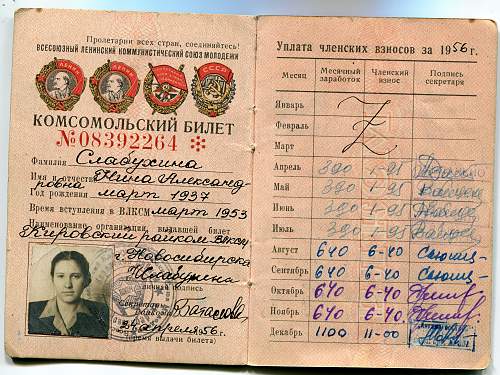 Пролетарии всех стран, соединяйтесь!
ВСЕСОЮЗНЫЙ ЛЕНИНСКИЙ КОММУНИСТИЧЕСКИЙ СОЮЗ МОЛОДЕЖИ
КОМСОМОЛЬСКИЙ БИЛЕТ
№08392264
Фамилия Сладухина
Имя и отчество Нина Александ-
ровна
Год рождения март 1937
Время вступления в ВЛКСМ март 1953
Наименование организации, выдавшей билет
Кировский райком ВЛКСМ
г. Новосибирска
личная подпись
Секретарь
райкома
24 апреля 1956 г.
(время выдачи билета)
Уплата членских взносов за 1956 г.
Месяц Месячный заработок Членский взнос Подпись секретаря
Январь Z
Февраль
Март
Апрель 390 1-95
Май 390 1-95
Июнь 390 1-95
Июль 390 1-95
Август 640 6-40
Сентябрь 640 6-40
Октябрь 640 6-40
Ноябрь 640 6-40
Декабрь 1100 11-00